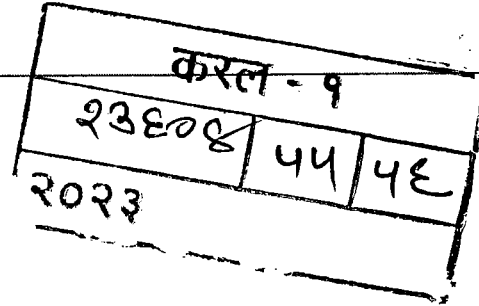 करल - १
२३६०४ ५५ ५६
२०२३